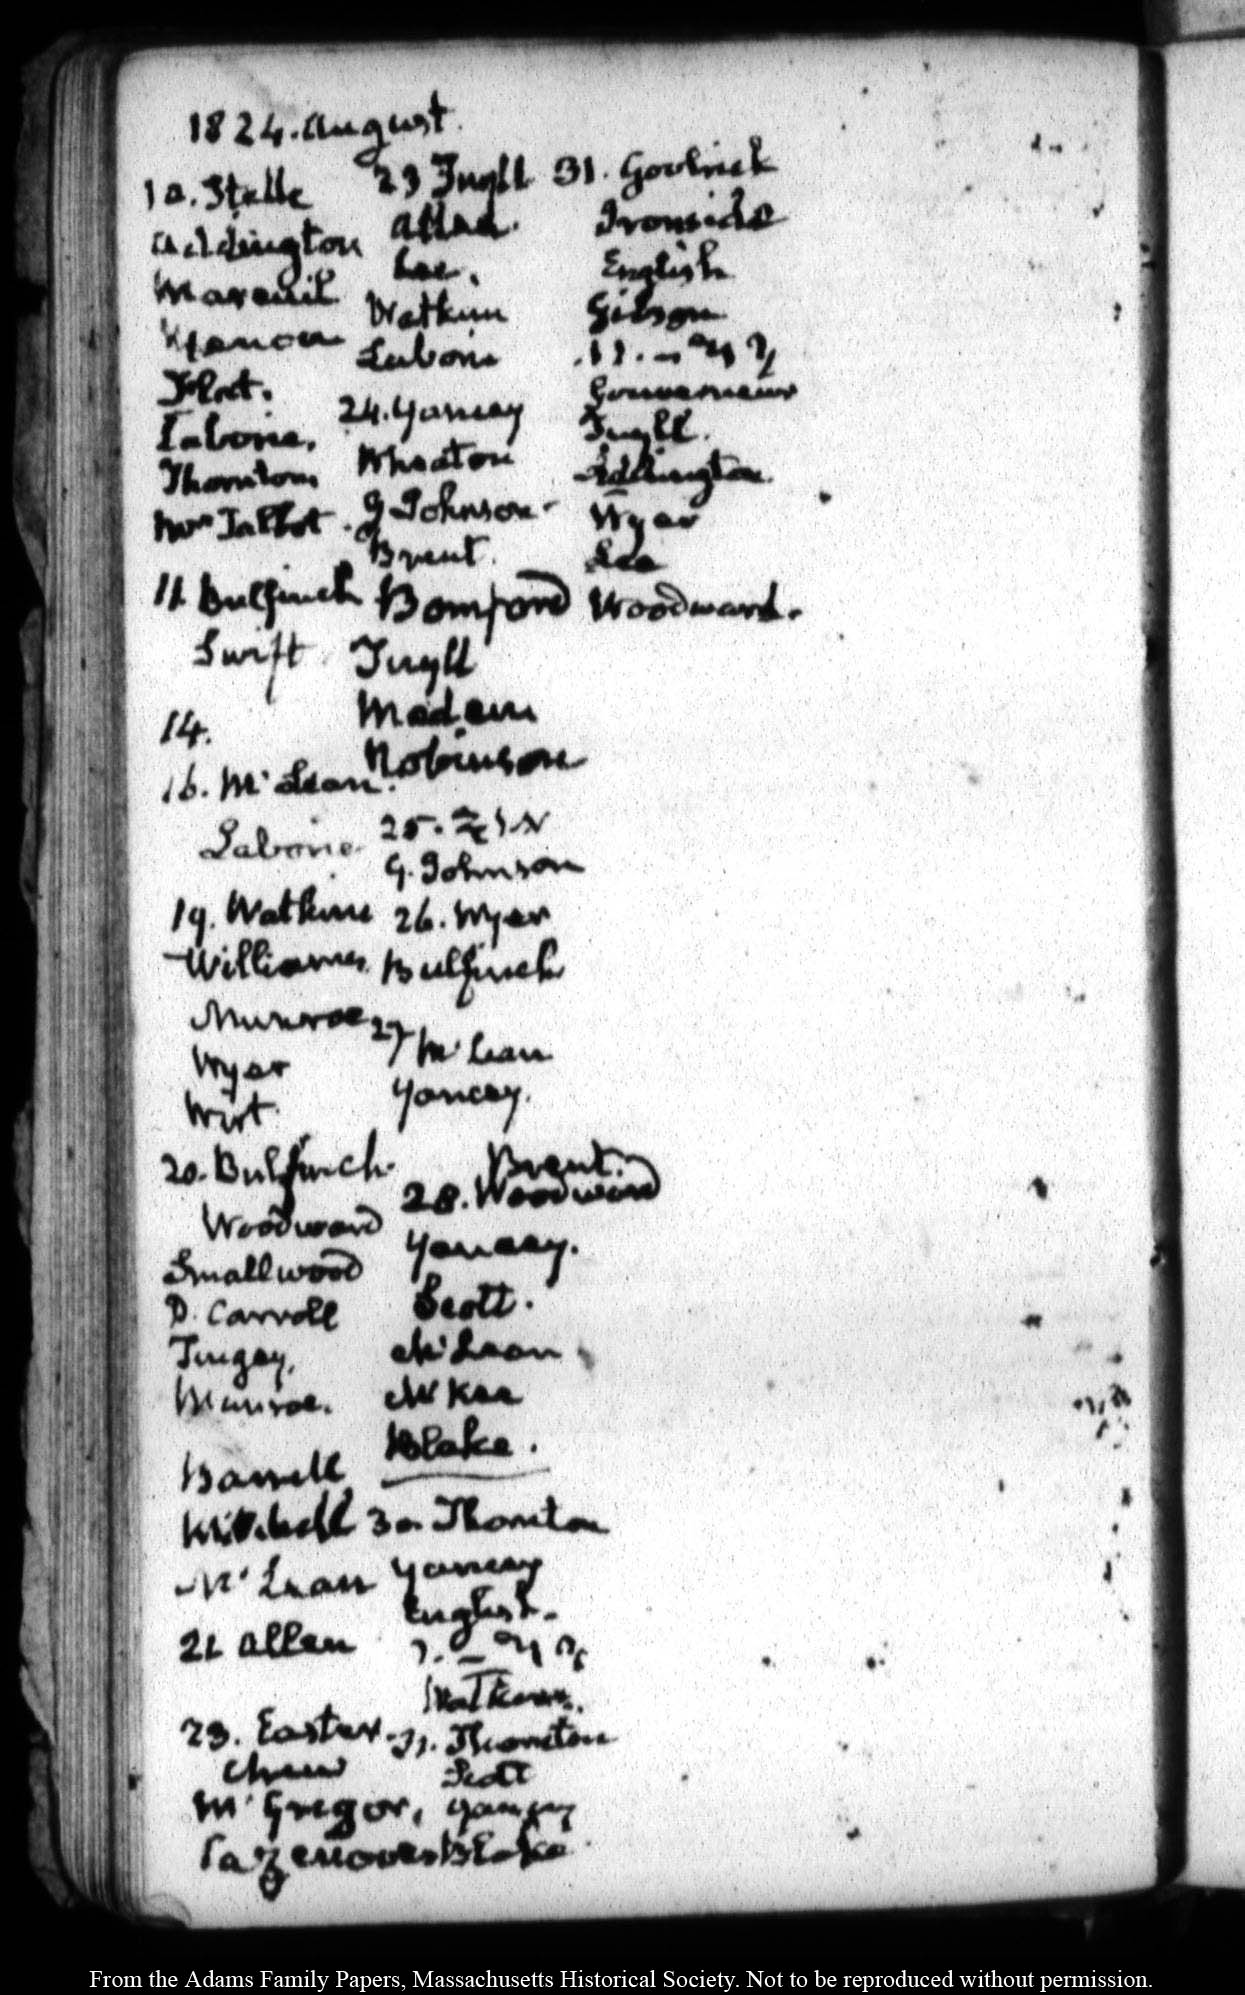 1824. August.
10. Stelle
Addington
Mareuil
Flat.
Laborie.
Thornton
Mrs Talbot.
11. Bulfinch
Swift
14.
16. McLean.
Laborie
19. Watkins
Williams
Munroe
Wyer
Wirt.
20. Bulfinch.
Woodward
Smallwood
D. Carroll
Tingey,
Munroe.
Barrell
Mitchell
McLean
21 Allen
23. Easter
Chew
McGregor,
Cazenove
23 Tuyll
Allen.
Lee.
Watkins
Laborie
24. Yancey
Wheaton
G Johnson
Brent.
Bomford
Tuyll
Madern
Robinson
25.
G. Johnson
26. Wyer
Bulfinch
27 McLean
Yancey.
Brent.
28. Woodward
Yancey.
Scott.
McLean
McKee
Blake.
30. Thornton
Yancey
English.
Watkins.
31. Thornton
Scott
Yancey
Blake
31. Goolrick
Ironside
English
Gibson
Gouverneur
Tuyll.
Addington.
Wyer
Lee
Woodward.
From the Adams Family Papers, Massachusetts Historical Society. Not to be reproduced without permission.